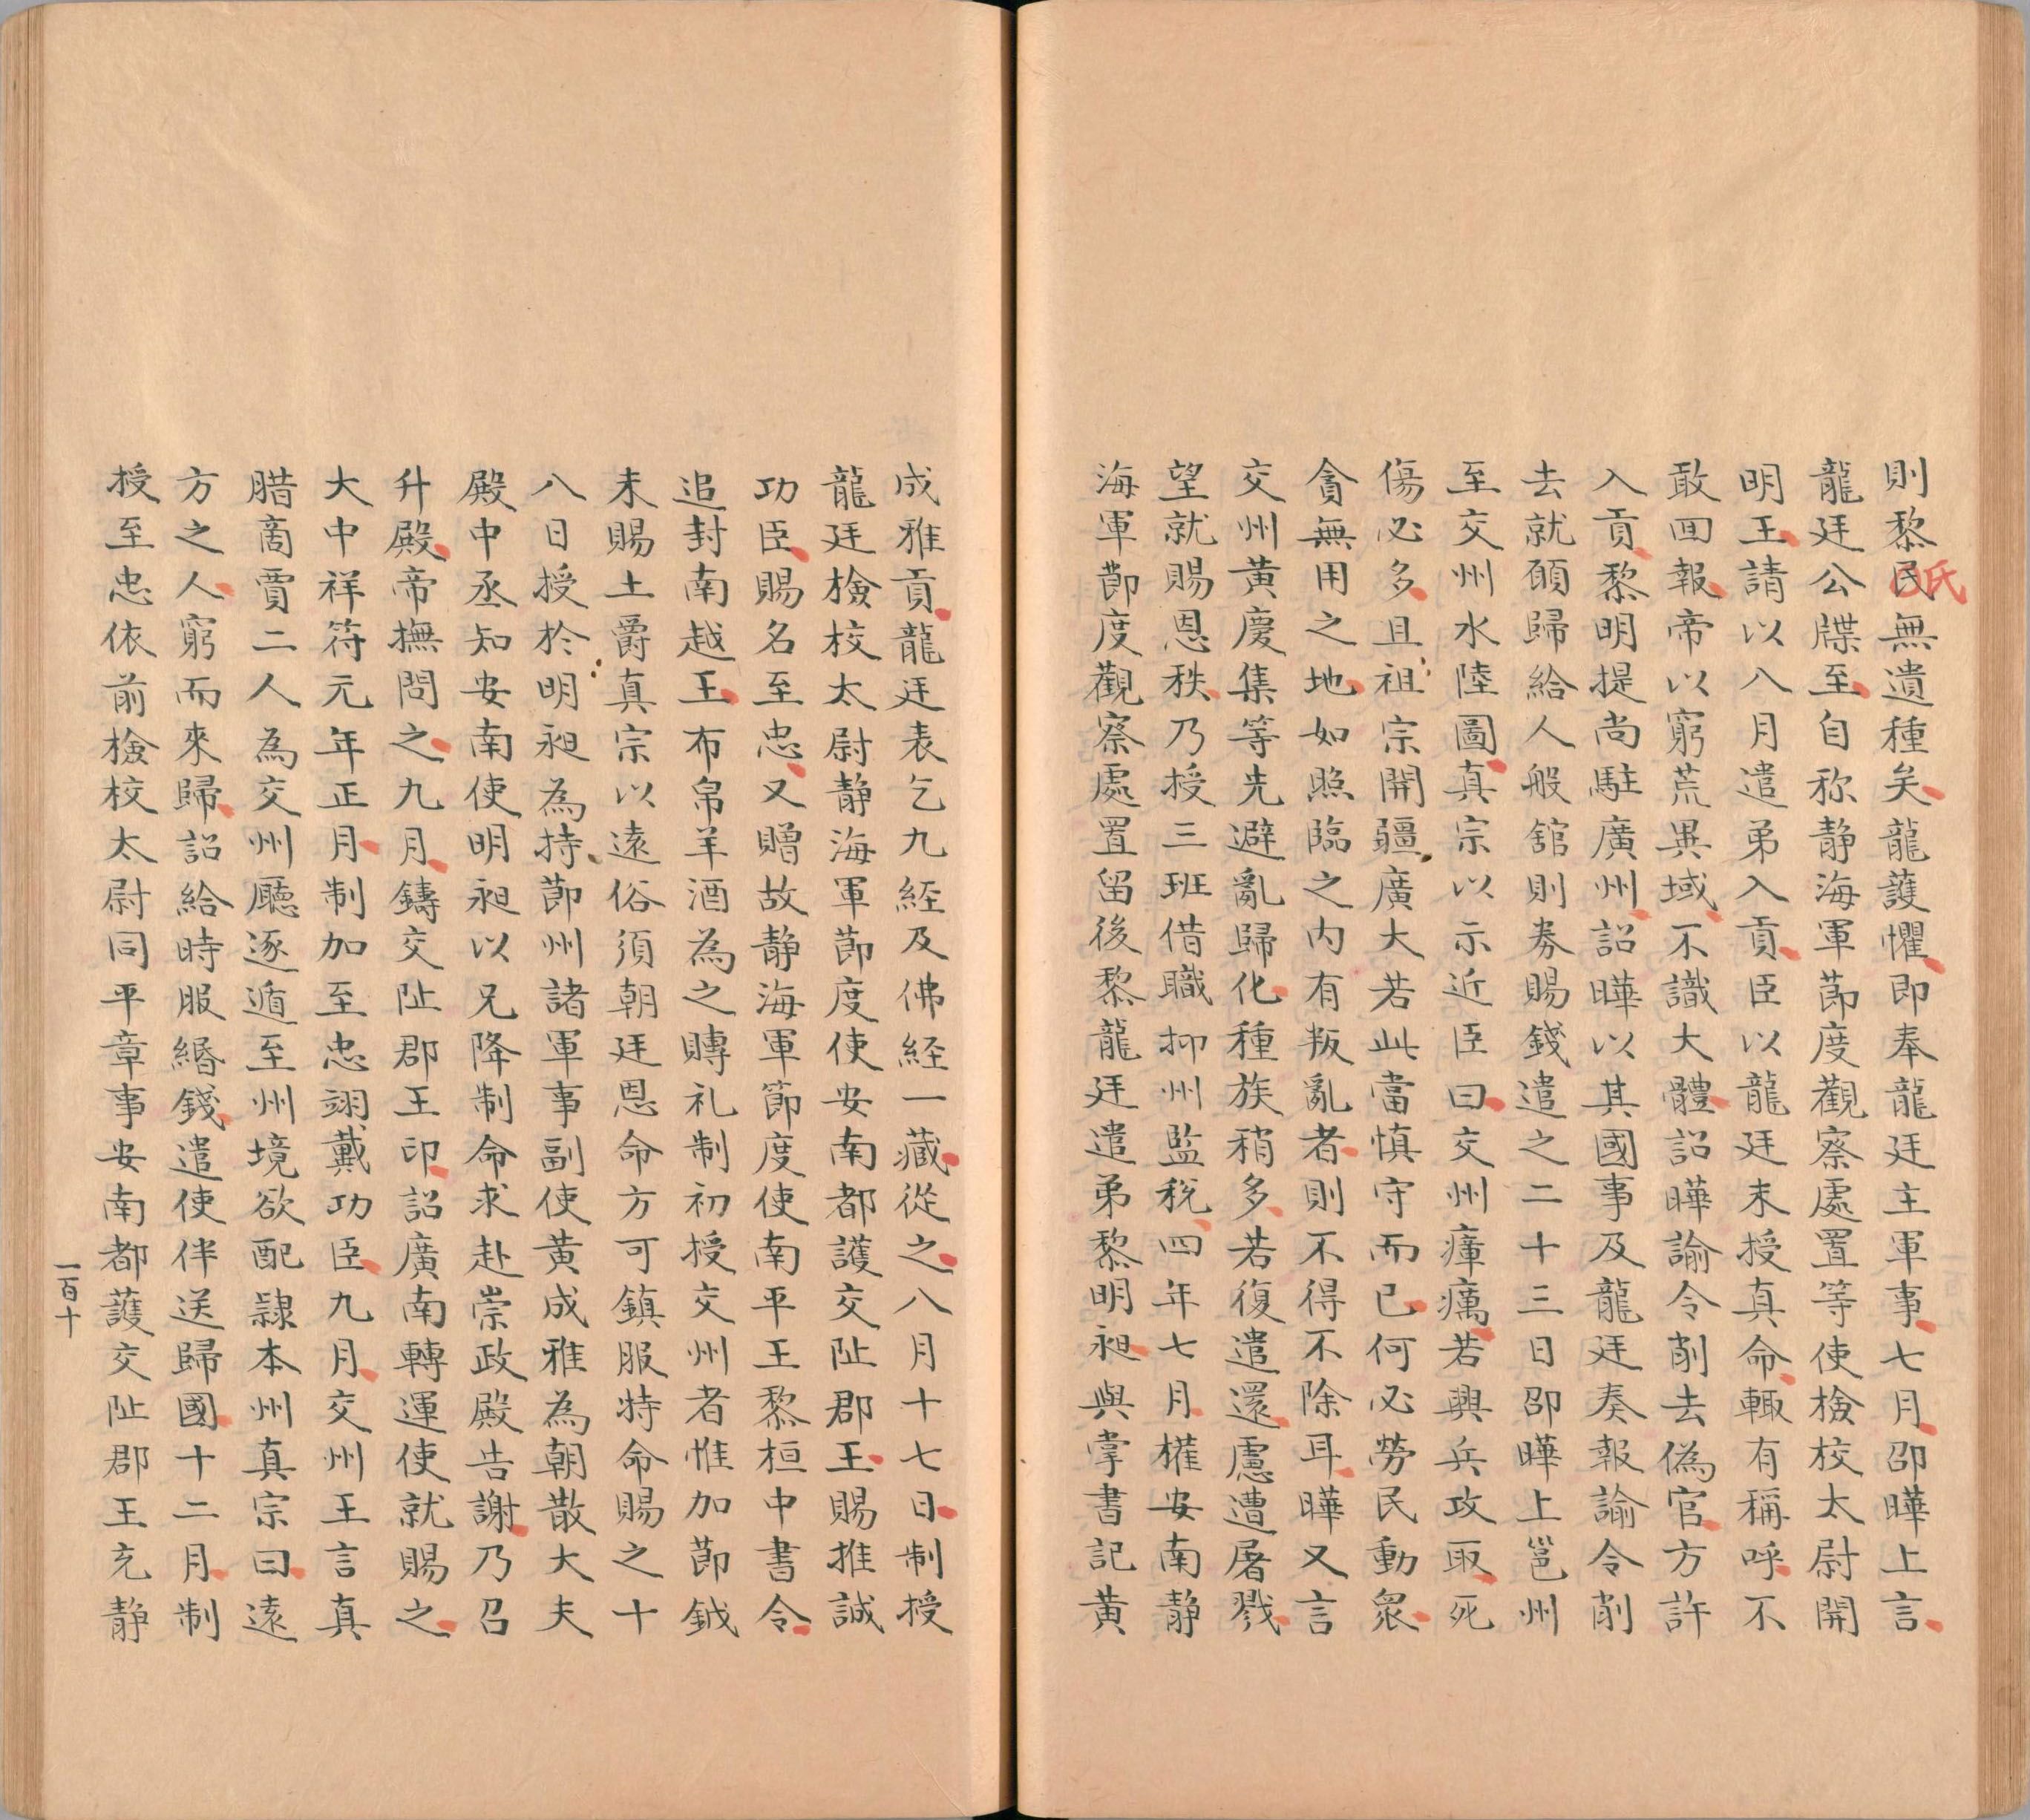 則黎民無遺種矣龍護懼即奉龍廷主軍事七月邵曄上言
氏
龍廷公牒至自称静海軍節度觀察處置等使檢校太尉開
明王請以八月遣弟入貢臣以龍廷未授真命輙有稱呼不
敢囬報帝以窮荒異域不識大體詔曄諭令削去偽官方許
入貢黎明提尚駐廣州詔曄以其國事及龍廷奏報諭令削
去就願歸給人般舘則券賜錢遣之二十三日邵曄上邕州
至交州水陸圖真宗以示近臣曰交州瘴癘若興兵攻取死
傷必多且祖宗開疆廣大若此當慎守而已何必勞民動衆
貪無用之地如照臨之内有叛亂者則不得不除耳曄又言
交州黄慶集等先避亂歸化種族稍多若復遣還慮遭屠戮
望就賜恩秩乃授三班借職抑州監稅四年七月權安南静
海軍節度觀察處置留後黎龍廷遣弟黎明昶與掌書記黄
成雅貢龍廷表乞九経及佛経一藏從之八月十七日制授
龍廷檢校太尉静海軍節度使安南都護交阯郡王賜推誠
功臣賜名至忠又贈故静海軍節度使南平王黎桓中書令
追封南越王布帛羊酒為之賻礼制初授交州者惟加節鉞
未賜土爵真宗以遠俗須朝廷恩命方可鎮服特命賜之十
八日授於明昶為持節州諸軍事副使黄成雅為朝散大夫
殿中丞知安南使明昶以兄降制命求赴崇政殿告謝乃召
升殿帝撫問之九月鑄交阯郡王印詔廣南轉運使就賜之
大中祥符元年正月制加至忠翊戴功臣九月交州王言真
腊啇賈二人為交州廳逐遁至州境欲配隷本州真宗曰遠
方之人窮而來歸詔給時服緡錢遣使伴送歸國十二月制
授至忠依前檢校太尉同平章事安南都護交阯郡王充静
一百十